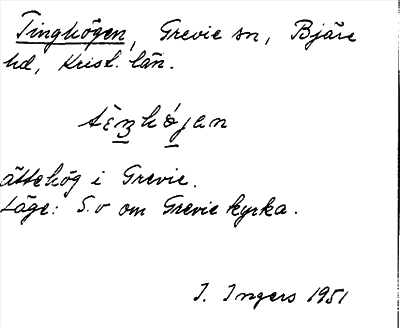 Tinghögen, Grevie sn, Bjäre
hd, Krist. län.
tèŋhǿjen
ättehög i Grevie.
Läge: S.v om Grevie kyrka.
I. Ingers 1951